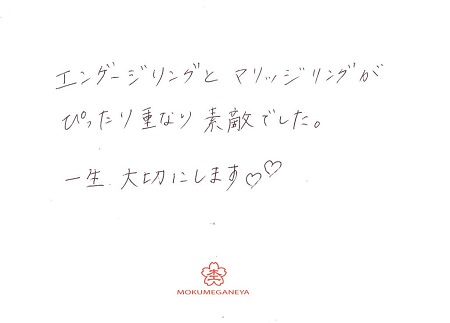 エンゲージリングと マリッジリングが
ぴったり重なり 素敵でした。
一生 大切にします♡♡
杢
MOKUMEGANEYA